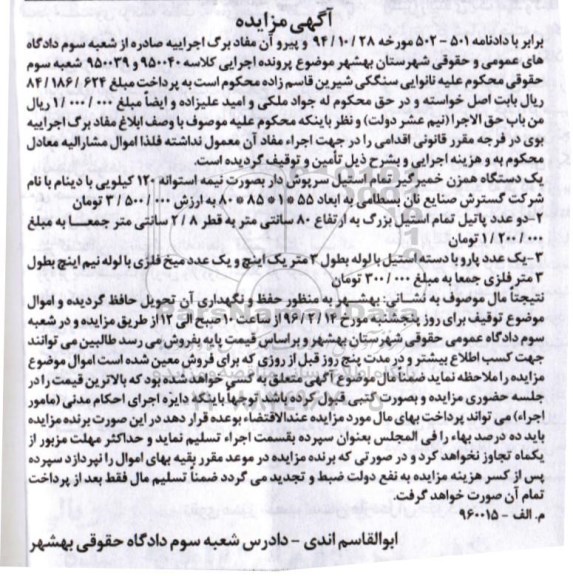 آگهی مزایده
برابر با دادنامه ۵۰۱ - ۵۰۲ مورخه ۲۸ / ۱۰ / ۹۴ و پیرو آن مفاد برگ اجراییه صادره از شعبه سوم دادگاه
های عمومی و حقوقی شهرستان بهشهر موضوع پرونده اجرایی کلاسه ۹۵۰۰۴۰ و ۹۵۰۰۳۹ شعبه سوم
حقوقی محکوم علیه نانوایی سنگکی شیرین قاسم زاده محکوم است به پرداخت مبلغ ۶۲۴ / ۱۸۶ / ۸۴
ریال بابت اصل خواسته و در حق محکوم له جواد ملکی و امید علیزاده و ایضاً مبلغ ۰۰۰ / ۰۰۰ / ۱ ریال
من باب حق الاجرا (نیم عشر دولت) و نظر باینکه محکوم علیه موصوف با وصف ابلاغ مفاد برگ اجراییه
بوی در فرجه مقرر قانونی اقدامی را در جهت اجراء مفاد آن معمول نداشته فلذا اموال مشارالیه معادل
محکوم به و هزینه اجرایی و بشرح ذیل تأمین و توقیف گردیده است.
یک دستگاه همزن خمیرگیر تمام استیل سرپوش دار بصورت نیمه استوانه ۱۲۰ کیلویی با دینام با نام
شرکت گسترش صنایع نان بسطامی به ابعاد ۵۵ * ۱ * ۸۵ * ۸۰ به ارزش ۰۰۰ / ۵۰۰ / ۳ تومان
۲- دو عدد پاتیل تمام استیل بزرگ به ارتفاع ۸۰ سانتی متر به قطر ۸ / ۲ سانتی متر جمعا به مبلغ
۰۰۰ / ۲۰۰ / ۱ تومان
۳- یک عدد پارو با دسته استیل با لوله بطول ۳ متر یک اینچ و یک عدد میخ فلزی با لوله نیم اینچ بطول
۳ متر فلزی جمعا به مبلغ ۰۰۰ / ۳۰۰ تومان
نتیجتاً مال موصوف به نشانی: بهشهر به منظور حفظ و نگهداری آن تحویل حافظ گردیده و اموال
موضوع توقیف برای روز پنجشنبه مورخ ۱۴ / ۲ / ۹۶ از ساعت ۱۰ صبح الی ۱۲ از طریق مزایده و در شعبه
سوم دادگاه عمومی حقوقی شهرستان بهشهر و براساس قیمت پایه بفروش می رسد طالبین می توانند
جهت کسب اطلاع بیشتر و در مدت پنج روز قبل از روزی که برای فروش معین شده است اموال موضوع
مزایده را ملاحظه نماید ضمناً مال موضوع آگهی متعلق به کسی خواهد شده بود که بالاترین قیمت را در
جلسه حضوری مزایده و بصورت کتبی قبول کرده باشد توجهاً باینکه دایره اجرای احکام مدنی (مامور
اجراء) می تواند پرداخت بهای مال مورد مزایده عندالاقتضاء بوعده قرار دهد در این صورت برنده مزایده
باید ده درصد بهاء را فی المجلس بعنوان سپرده بقسمت اجراء تسلیم نماید و حداکثر مهلت مزبور از
یکماه تجاوز نخواهد کرد و در صورتی که برنده مزایده در موعد مقرر بقیه بهای اموال را نپردازد سپرده
پس از کسر هزینه مزایده به نفع دولت ضبط و تجدید می گردد ضمناً تسلیم مال فقط بعد از پرداخت
تمام آن صورت خواهد گرفت.
م. الف - ۹۶۰۰۱۵
ابوالقاسم اندی - دادرس شعبه سوم دادگاه حقوقی بهشهر